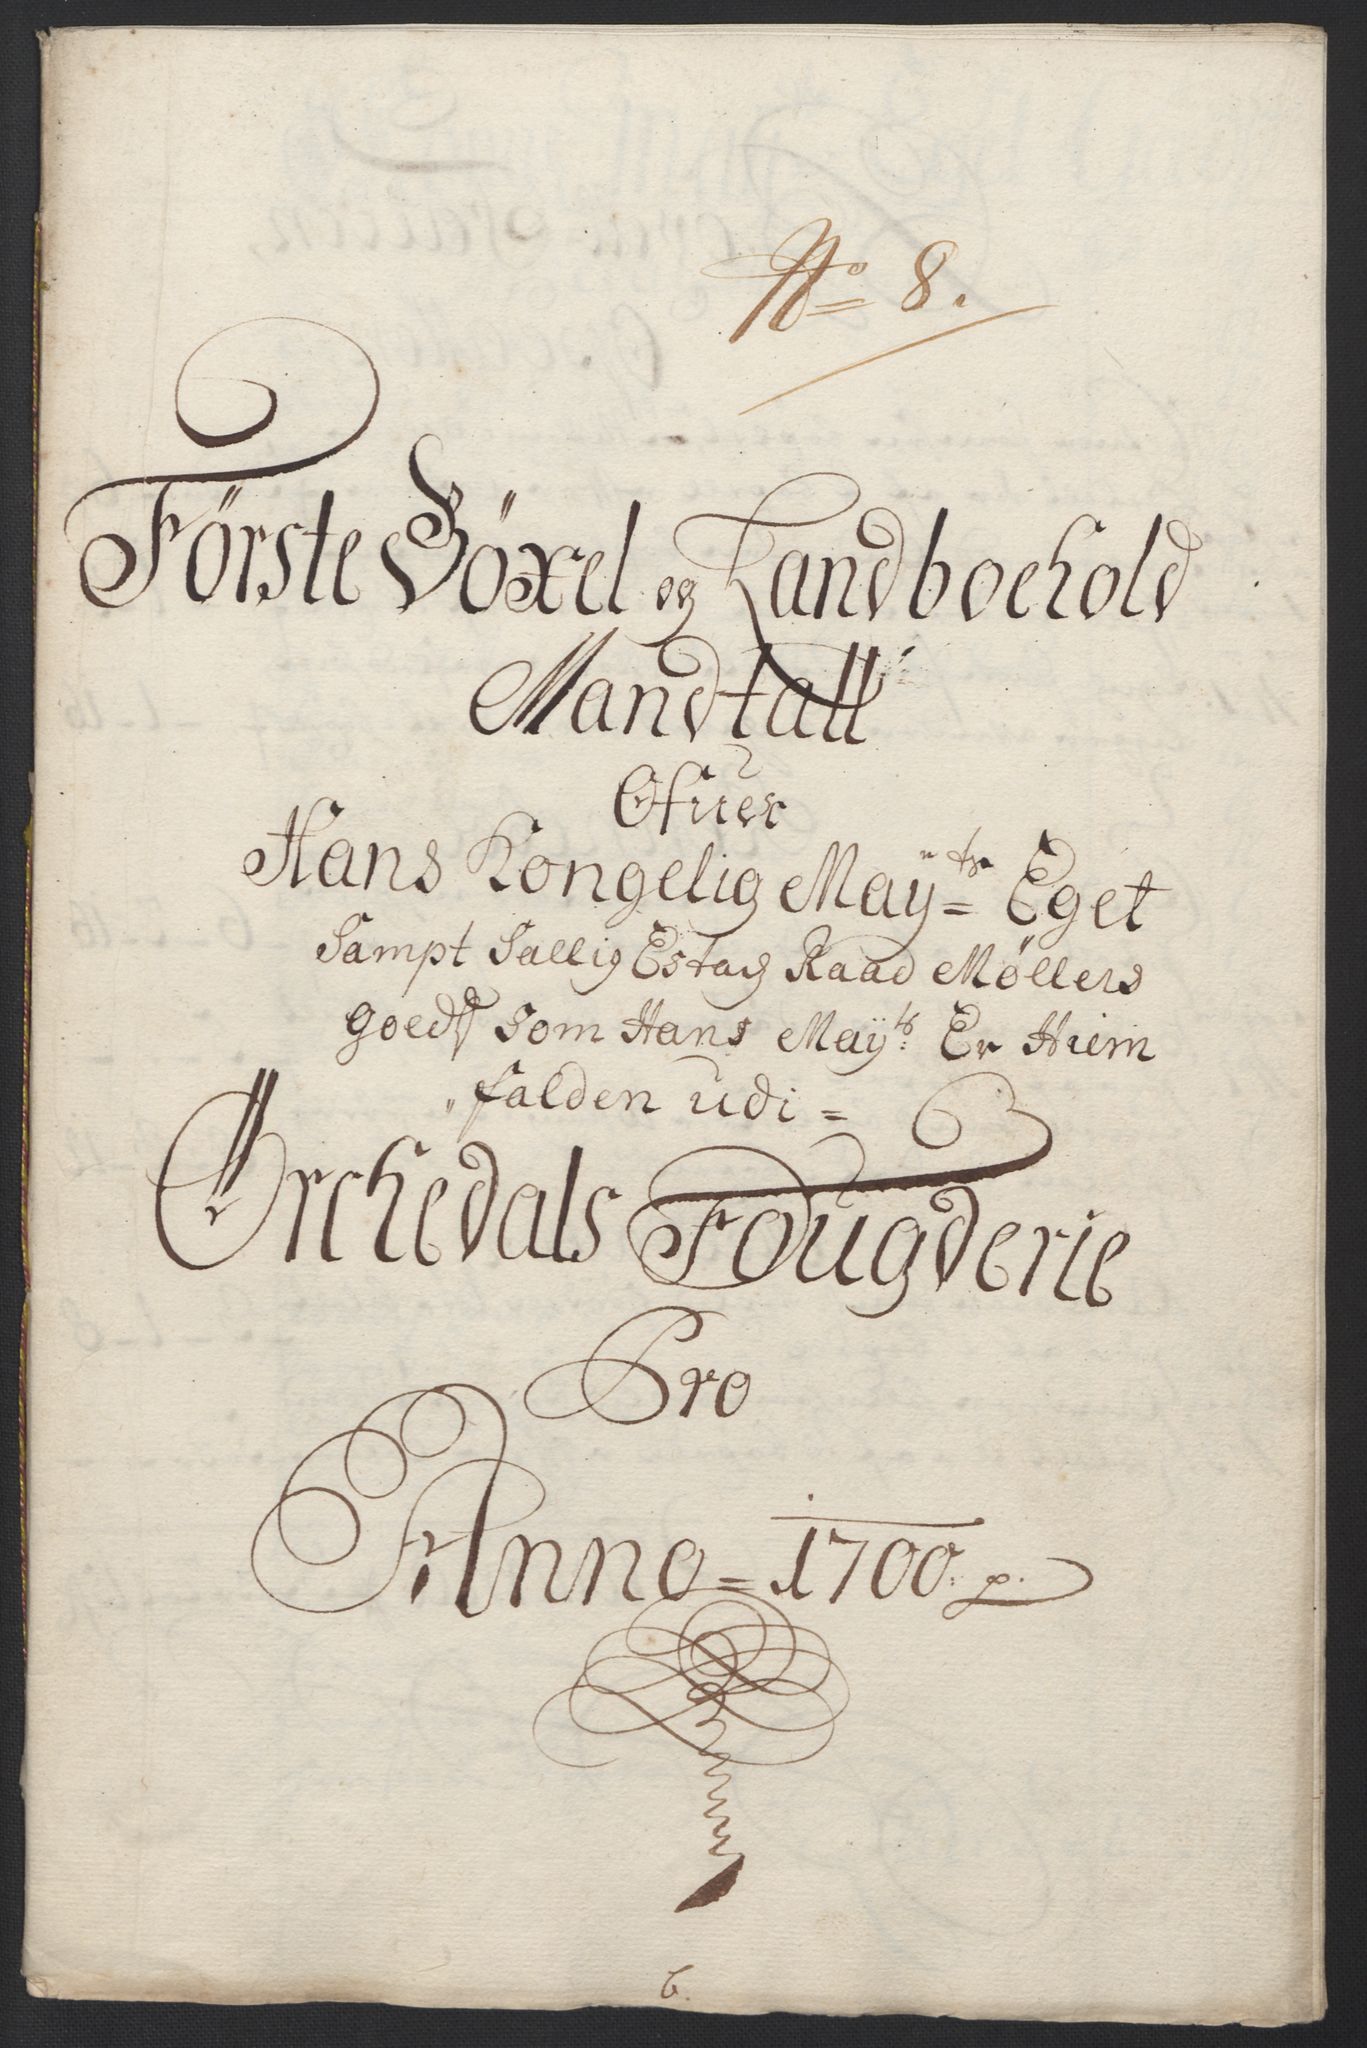 No= 8.
Förste Böxel og Landboehold
Mandtall
Ofuer
Hans Kongelig Maÿ=ts Eget
Sampt Sallig Estatz Raad Möllers
goedtz Som Hans Maÿts: Er Hiem
falden udi =
Orchedals Fougderie
Pro
Anno = 1700:
6.